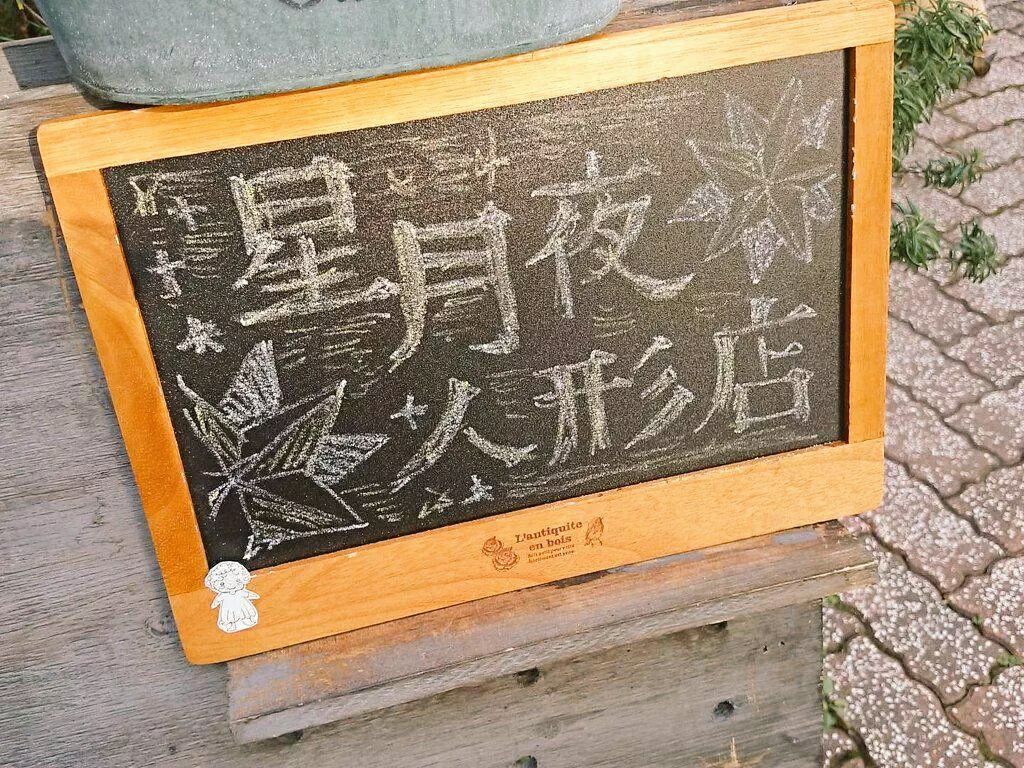 星月夜
人形店
L'antiquite
en bois